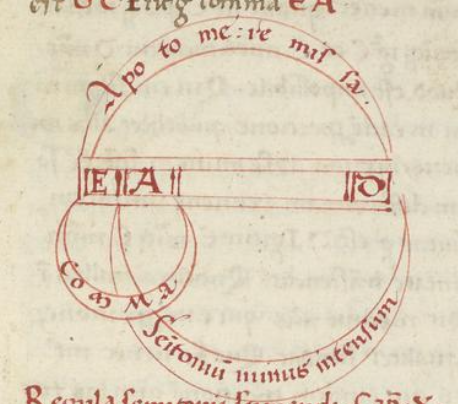 est DCE ncg comma EA
Apo to me: re mis sa.
E A D
Co m M a
Seitoniu minus intensum
Regula semitonii